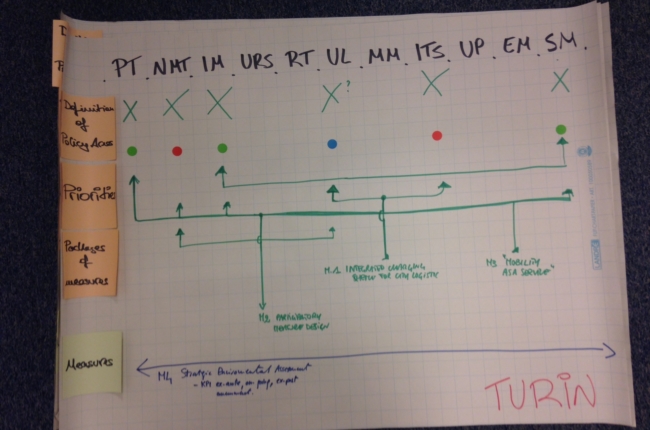 PT. NMT. IM. URS. RT. UL. MM. ITS. UP. EM. SM.
X X X X? X X
Definition
of
Policy Areas
Priorities
Packages
of
measures
M1 INTEGRATED
FOR CITY LOGISTIC
M3 "MOBILITY
AS A SERVICE"
M2 PARTICIPATORY
MEASURE DESIGN
Measures
M4 Strategic Environmental Assessment
- KPI ex-ante, ex-post
TURIN